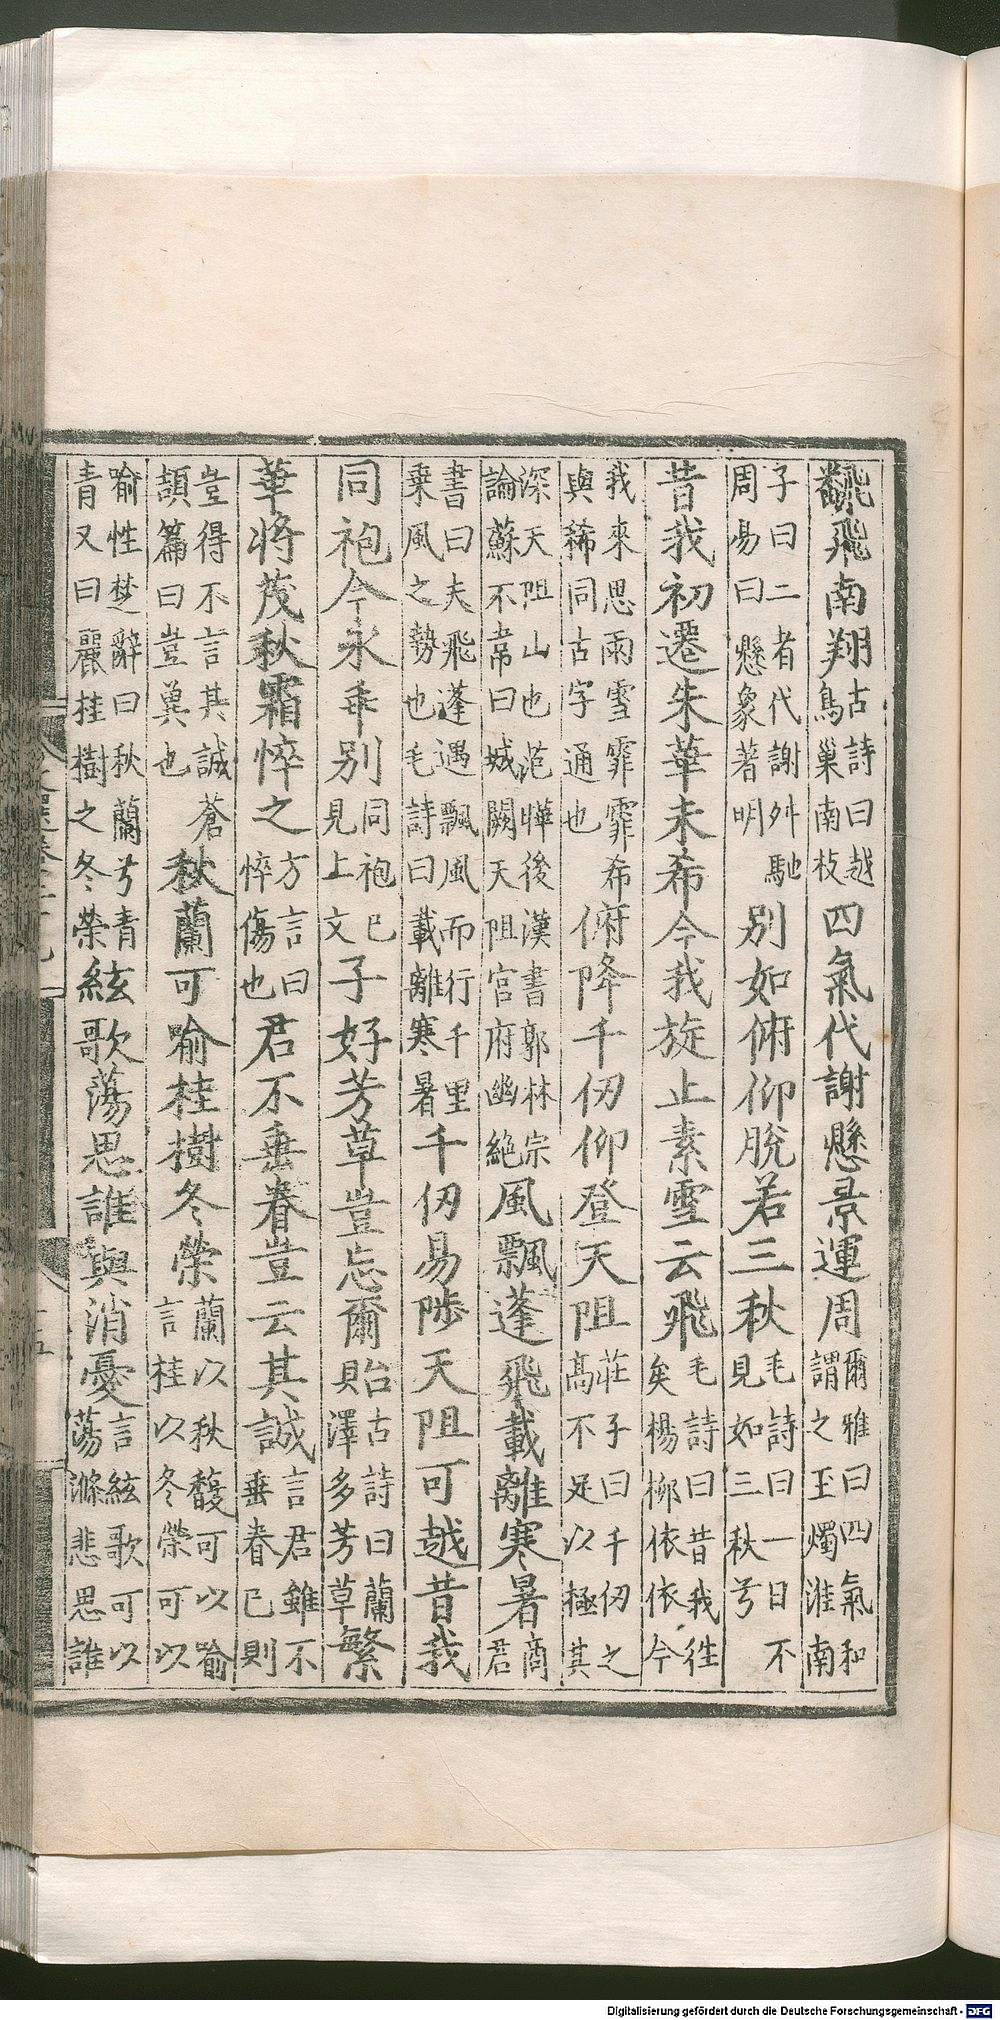 飜飛南翔古詩曰越鳥巢南枝四氣代謝懸景運周爾雅曰四氣和謂之玉燭淮南
子曰二者代謝舛馳周易曰懸象著明別如俯仰脫若三秋毛詩曰一日不見如三秋兮
昔我初遷朱華未希今我旋止素雪云飛毛詩曰昔我徃矣楊柳依依今
我來思雨雪霏霏希與稀同古字通也俯降千仞仰登天阻莊子曰千仞之高不足以極其
深天阻山也范曄後漢書郭林宗論蘇不韋曰城闕天阻宮府幽絕風飄蓬飛載離寒暑商君
書曰夫飛蓬遇飄風而行千里乗風之勢也毛詩曰載離寒暑千仞易陟天阻可越昔我
同袍今永乖別同袍已見上文子好芳草豈忘爾貽古詩曰蘭澤多芳草繁
華將茂秋霜悴之方言曰悴傷也君不垂眷豈云其誠言君雖不垂眷已則
豈得不言其誠蒼頡篇曰豈冀也秋蘭可喻桂樹冬榮蘭以秋馥可以喻言桂以冬榮可以
喻性楚辭曰秋蘭兮青青又曰麗桂樹之冬榮絃歌蕩思誰與消憂言絃歌可以蕩滌悲思誰
Digitalisierung gefördert durch die Deutsche Forschungsgemeinschaft - DFG